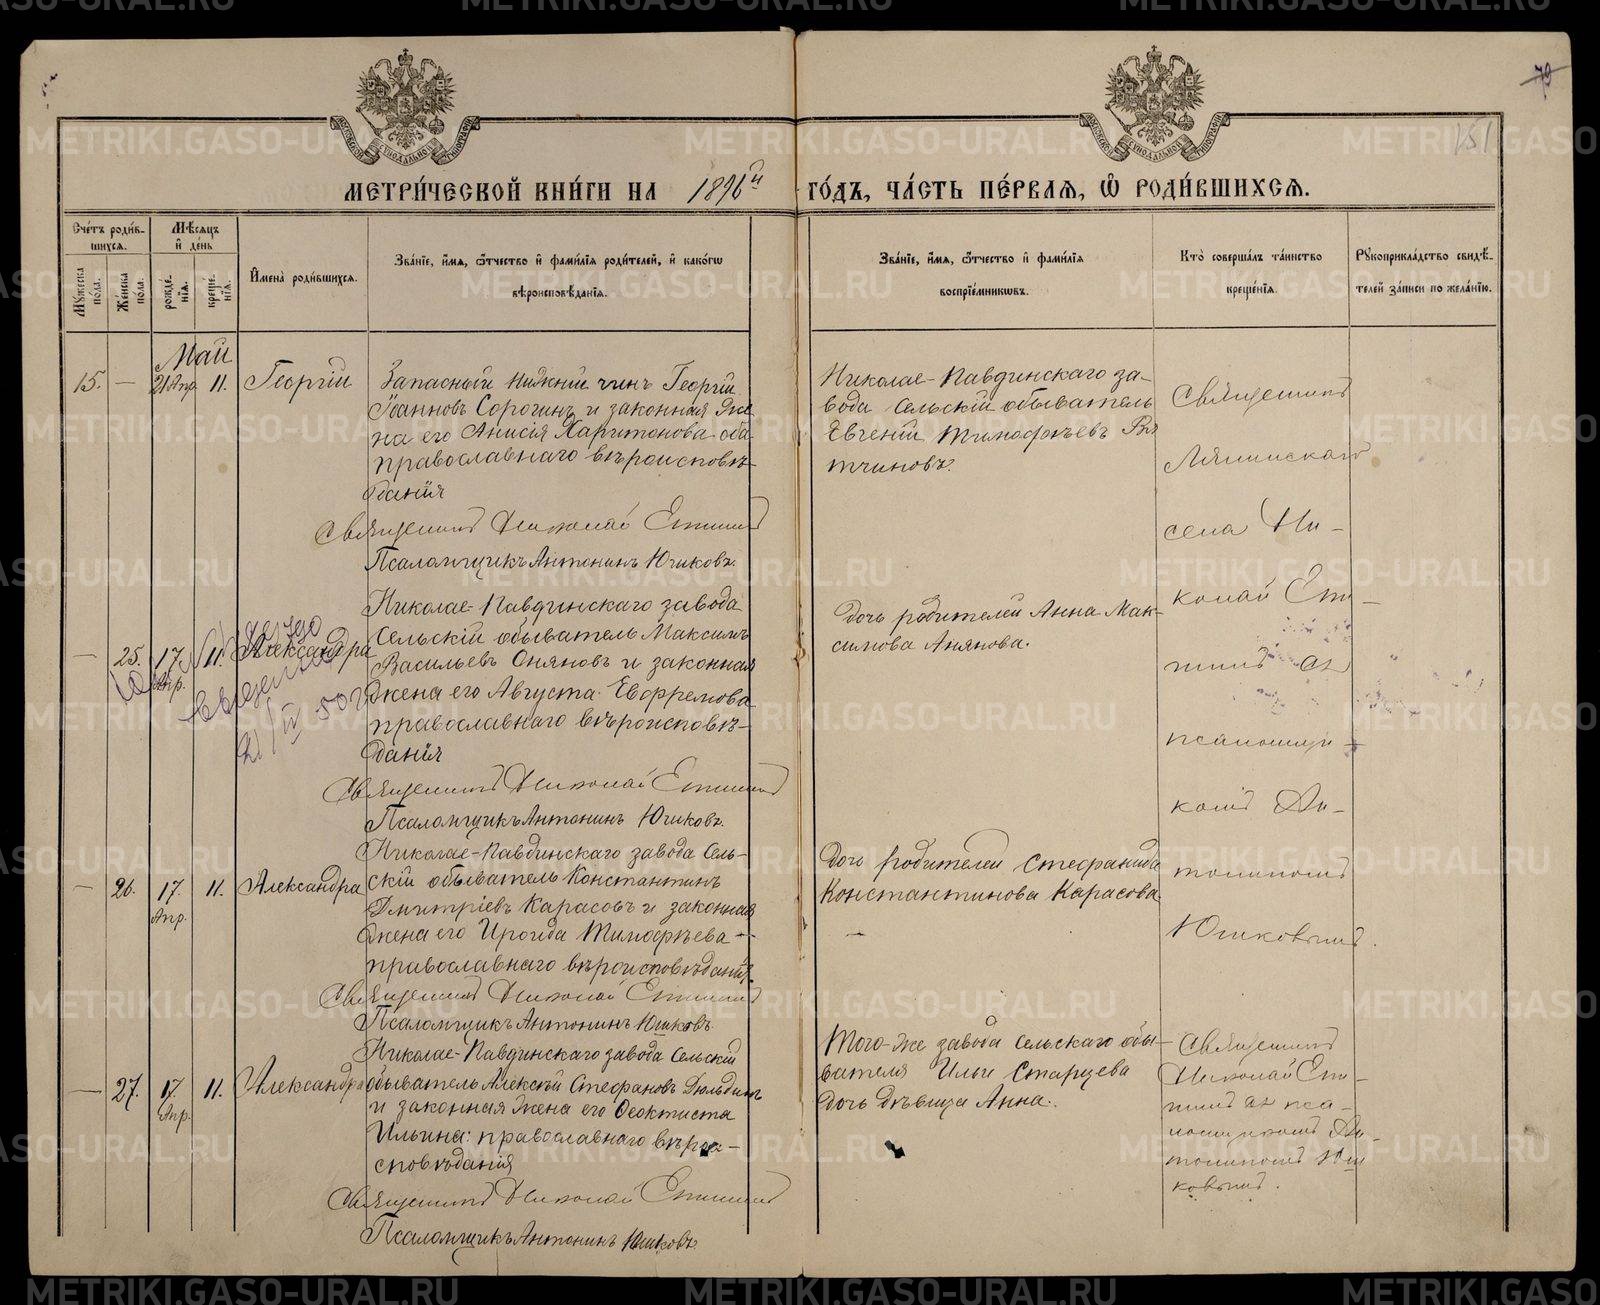 79
151
МЕТРИ́ЧЕСКОЙ КНИ́ГИ НА 1896й ГО́ДЪ, ЧА́СТЬ ПЕ́РВАЯ, Ѡ҆ РОДИ́ВШИХСЯ.
Сче́тъ роди́вшихся.
Мѣ́сяцъ и҆ де́нь
Мꙋжеска по́ла.
Же́нска по́ла.
рожде́нїя.
креще́нїя.
И҆мена̀ роди́вшихся.
Зва́нїе, и҆́мя, ѻ҆́тчество и҆ фами́лїя роди́телей, и҆ како́гѡ
вѣроисповѣ́данїя.
Зва́нїе, и҆́мя, ѻ҆́тчество и҆ фами́лїя
воспрїе́мникѡвъ.
Кто̀ соверша́лъ та́инство
креще́нїя.
Рꙋкоприкла́дство свидѣ́-
телей за́писи по жела́нїю.
Май
15. — 21 Апр. 11. Георгій
Запасный нижній чинъ Георгій
Іоанновъ Сорогинъ и законная же
на его Анисія Харитонова оба
православнаго вѣроисповѣ-
данія
Священникъ Николай
Псаломщикъ Антонинъ Юшковъ.
Николае-Павдинскаго за-
вода сельскій обыватель
Евгеній Тимофѣевъ Вя
тчиновъ.
— 25. 17 Апр. 11. Александра
Николае-Павдинскаго завода
Сельскій обыватель Максимъ
Васильевъ Оняновъ и законная
жена его Августа Евфремова
православнаго вѣроисповѣ-
данія
Священникъ Николай
Псаломщикъ Антонинъ Юшковъ.
Дочь родителей Анна Мак-
симова Анянова.
— 26. 17. Апр. 11. Александра
Николае-Павдинскаго завода Сель-
скій обыватель Константинъ
Дмитріевъ Карасовъ и законная
жена его Ироида Тимофѣева —
православнаго вѣроисповѣданія.
Священникъ Николай
Псаломщикъ Антонинъ Юшковъ.
Дочь родителей Стефанида
Константинова Карасова
—
Священникъ
Лялинскаго
села Ни-
колай
съ
псаломщи-
комъ Ан-
тониномъ
Юшковымъ.
— 27. 17. Апр. 11. Александра
Николае-Павдинскаго завода Сельскій
обыватель Алексѣй Стефановъ Дюльдинъ
и законная жена его Ѳеоктиста
Ильина: православнаго вѣрои-
сповѣданія
Священникъ Николай
Псаломщикъ Антонинъ Юшковъ.
Того-же завода сельскаго обы-
вателя Ильи Старцева
дочь дѣвица Анна.
Священникъ
Николай
съ пса-
ломщикомъ Ан-
тониномъ Юш
ковымъ.
METRIKI.GASO-URAL.RU